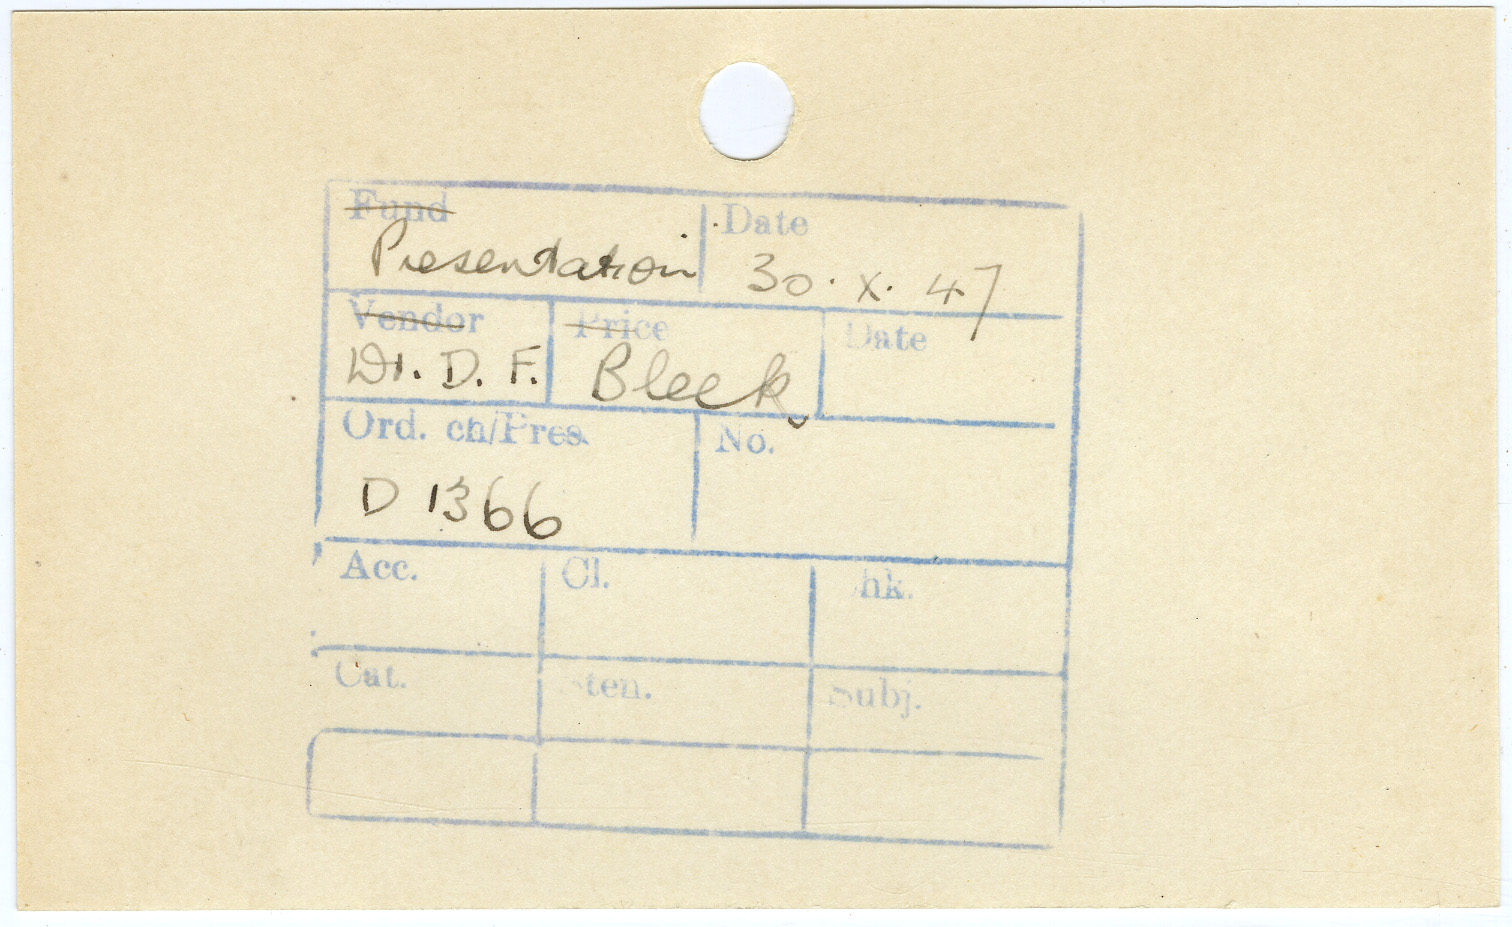 Fund Date
Presentation 30. X. 47
Vendor Price Date
Dr. D. F. Bleek
Ord. ch/Pres. No.
D 1366
Acc. Cl. hk.
Cat. Sten. Subj.